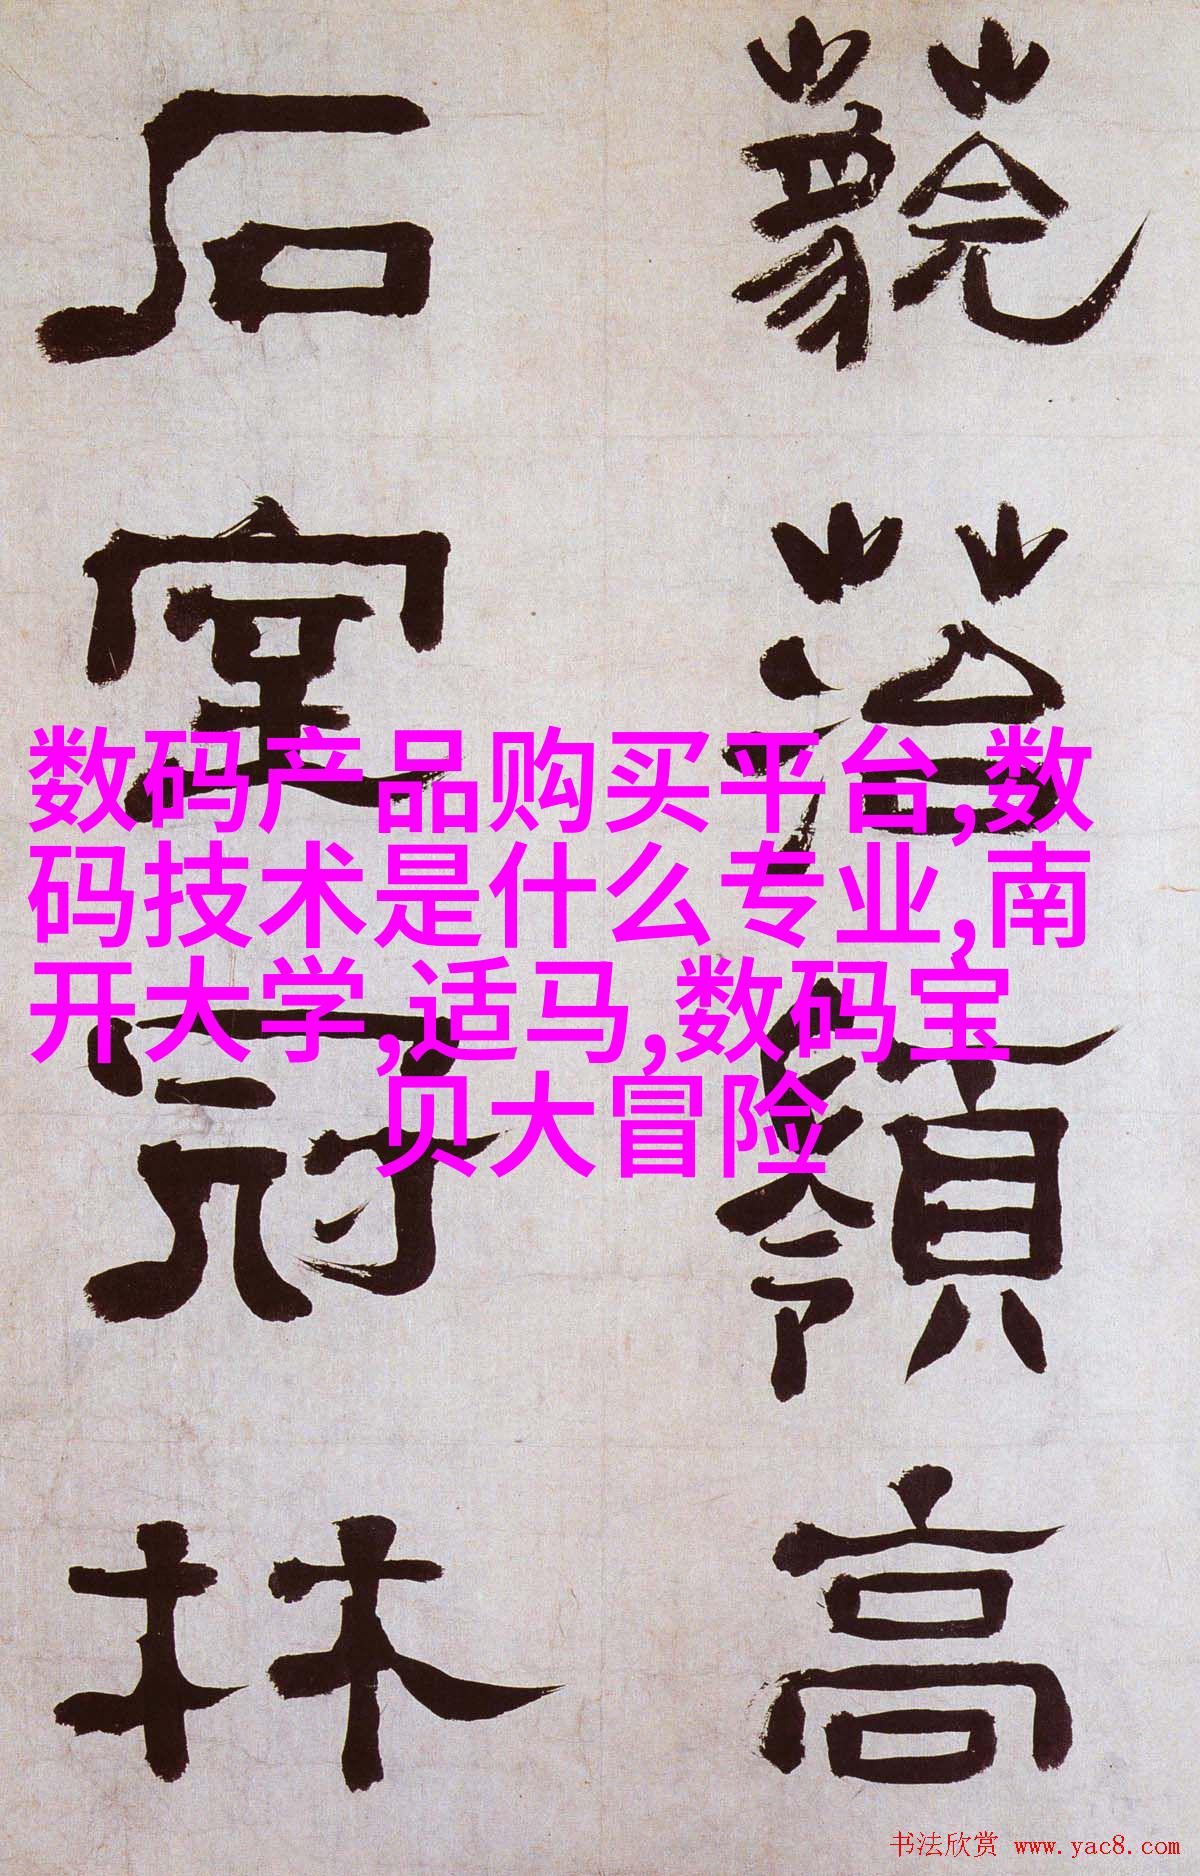 菭
嶺
高
石
室
冠
林
数码产品购买平台,数
码技术是什么专业,南
开大学,适马,数码宝
贝大冒险
书法欣赏 www.yac8.com